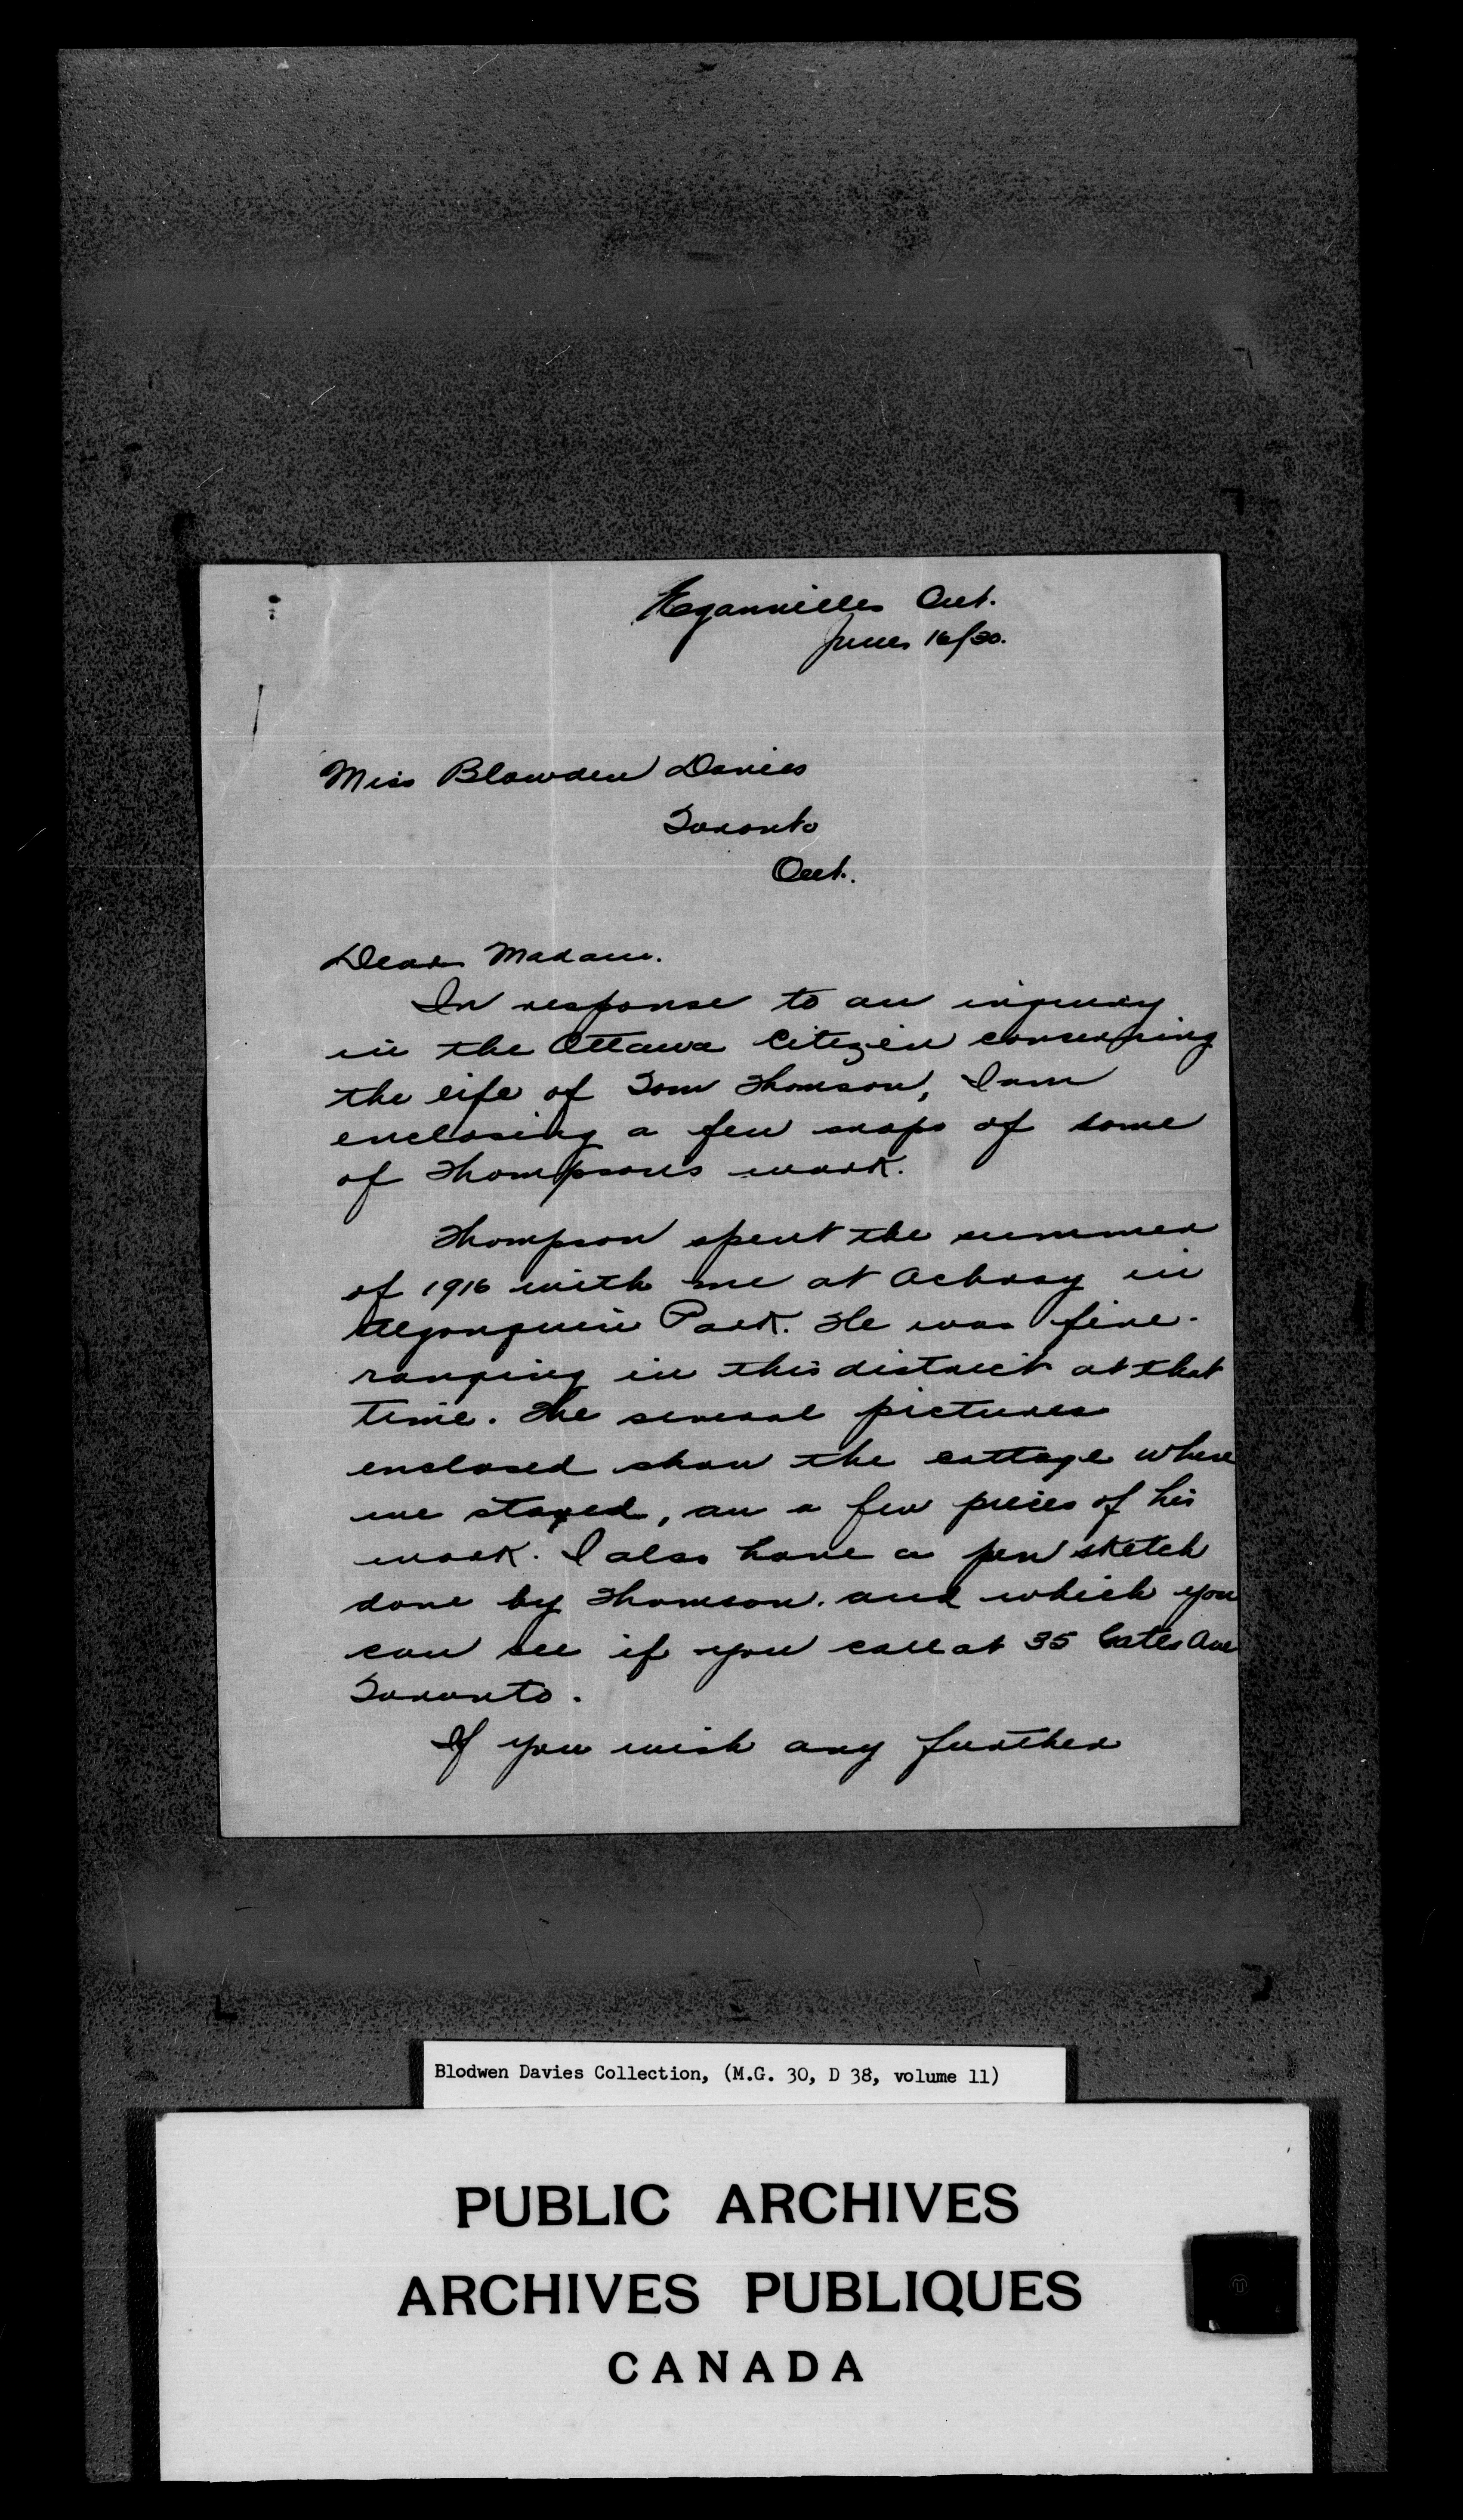 Eganville Ont.
June 16/30.
Miss Blowden Davies
Toronto
Ont.
Dear Madam.
In response to an inquiry
in the Ottawa Citizen concerning
the life of Tom Thomson, I am
enclosing a few snaps of some
of Thompsons work.
Thompson spent the summer
of 1916 with me at Achray in
Algonquin Park. He was fire-
ranging in this district at that
time. The several pictures
enclosed show the cottage where
we stayed, an a few pieces of his
work. I also have a pen sketch
done by Thomson. and which you
can see if you call at 35 Ave
Toronto.
If you wish any further
Blodwen Davies Collection, (M.G. 30, D 38, volume 11)
PUBLIC ARCHIVES
ARCHIVES PUBLIQUES
CANADA